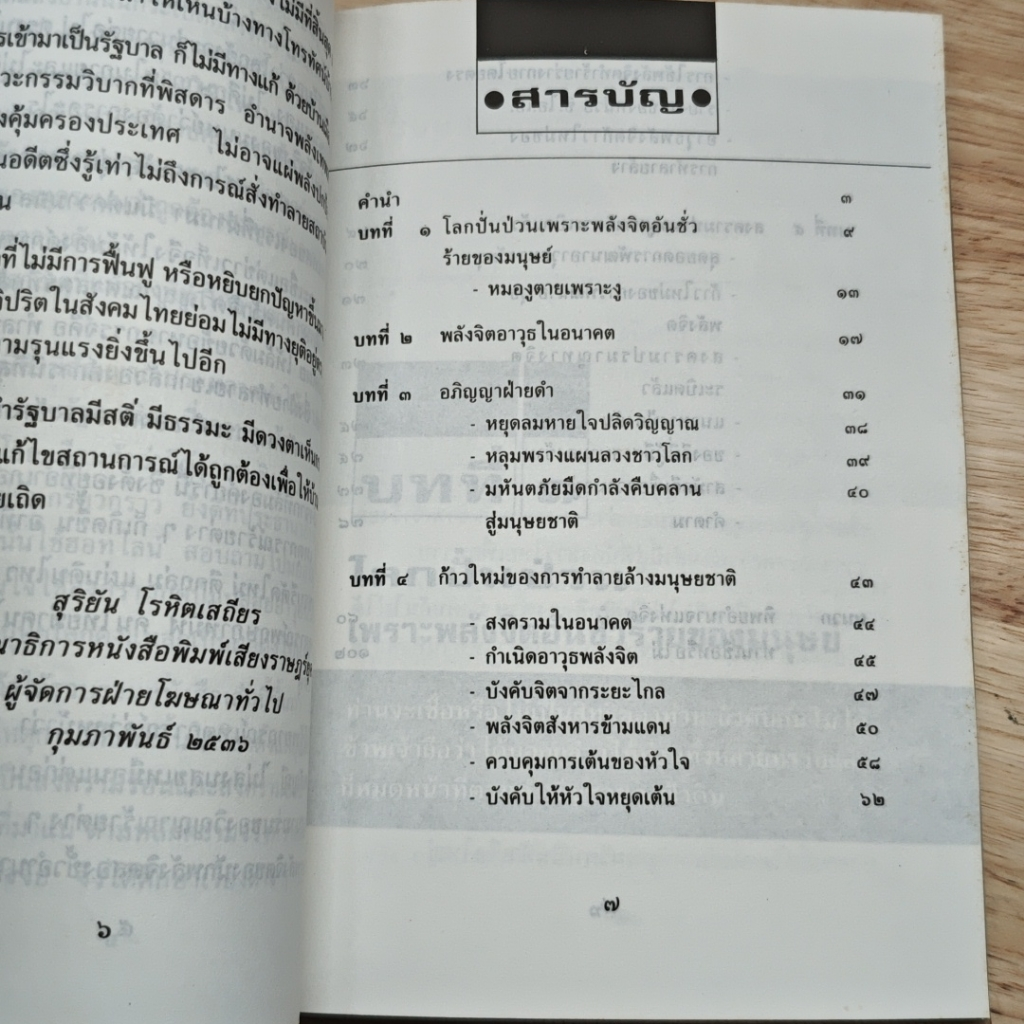 รเข้ามาเป็นรัฐบาล ก็ไม่มีทางแก้ ด้วยบ้าน
วะกรรมวิบากที่พิสดาร อำนาจพลัง
งคุ้มครองประเทศ ไม่อาจแผ่พลัง
นอดีตซึ่งรู้เท่าไม่ถึงการณ์สั่งทำลาย
น
ที่ไม่มีการฟื้นฟู หรือหยิบยกปัญหาขึ้น
ิปริตในสังคมไทยย่อมไม่มีทางยุติอยู่
ามรุนแรงยิ่งขึ้นไปอีก
ำรัฐบาลมีสติ่ มีธรรมะ มีดวงตาเห็น
แก้ไขสถานการณ์ได้ถูกต้องเพื่อให้
ยเถิด
สุริยัน โรหิตเสถียร
ณาธิการหนังสือพิมพ์เสียงราษฎร์
ผู้จัดการฝ่ายโฆษณาทั่วไป
กุมภาพันธ์ ๒๕๓๖
๖
●สารบัญ●
คำนำ ๓
บทที่ ๑ โลกปั่นป่วนเพราะพลังจิตอันชั่ว ๙
ร้ายของมนุษย์
- หมองูตายเพราะงู ๑๓
บทที่ ๒ พลังจิตอาวุธในอนาคต ๑๗
บทที่ ๓ อภิญญาฝ่ายดำ ๓๑
- หยุดลมหายใจปลิดวิญญาณ ๓๘
- หลุมพรางแผนลวงชาวโลก ๓๙
- มหันตภัยมืดกำลังคืบคลาน ๔๐
สู่มนุษยชาติ
บทที่ ๔ ก้าวใหม่ของการทำลายล้างมนุษยชาติ ๔๓
- สงครามในอนาคต ๔๔
- กำเนิดอาวุธพลังจิต ๔๕
- บังคับจิตจากระยะไกล ๔๗
- พลังจิตสังหารข้ามแดน ๕๐
- ควบคุมการเต้นของหัวใจ ๕๘
- บังคับให้หัวใจหยุดเต้น ๖๒
๗